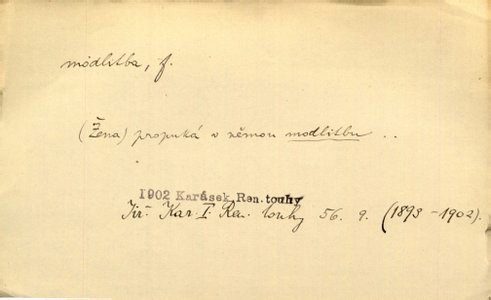 modlitba, f.
(Žena) propuká v němou modlitbu ..
1902 Karásek, Ren. touhy
Jiř. Kar. I. Ren. touhy 56. 9. (1893-1902).